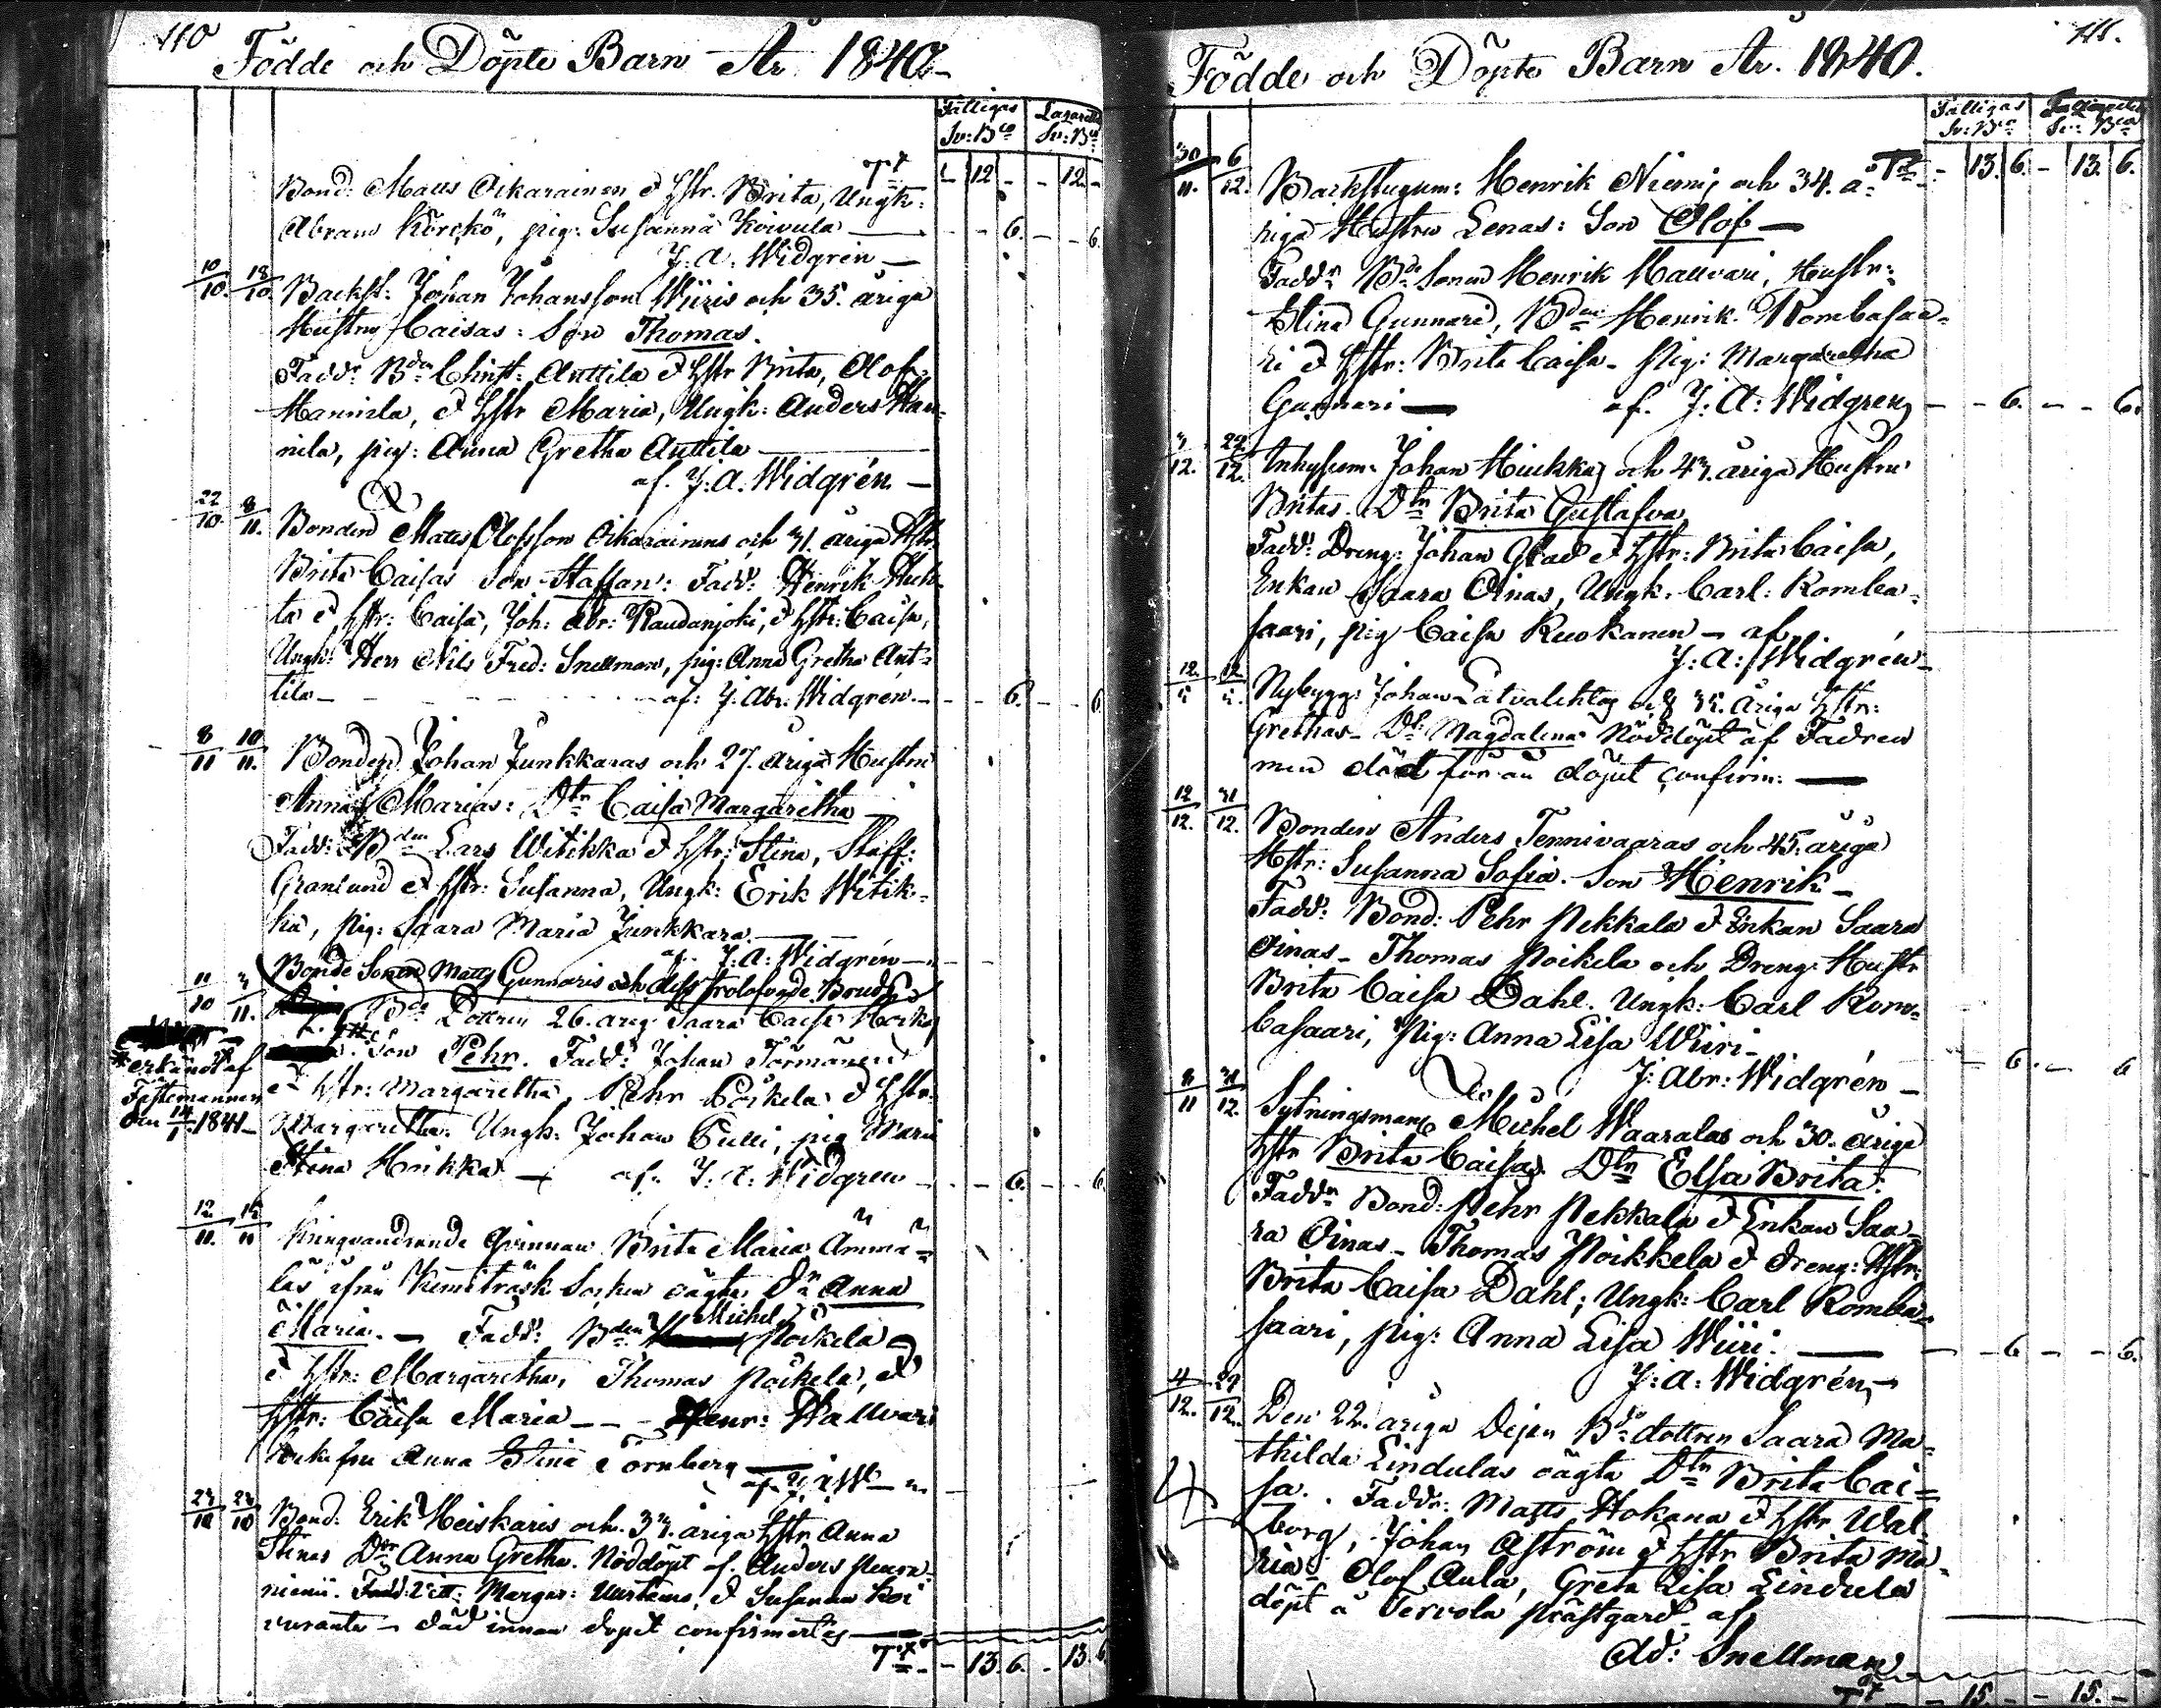 110
Födde och Döpte Barn År 1840.
Fattigas Lazarett
Sv: Bco Sv: Bco
Trt - 12 - - 12 -
Bond: Matts Oikarainen & Hstr. Brita, Ungk:
Abram Körckö, pig: Susanna Koivula — - - 6. - - 6.
J: A: Widgrén —
10/10. 18/10. Backst: Johan Johansson Wiiris och 35. åriga
Hustru Caisas: Son Thomas.
Fadd: Bdn Christ: Anttila & Hstr Brita, Olof
Mannila, & Hstr Maria, Ungk: Anders Man-
nila, pig: Anna Gretha Anttila —
af. J: A: Widgrén —
22/10. 8/11. Bonden Matts Olofsson Oikarainens och 31. åriga Hstr.
Brita Caisas Son Staffan: Fadd: Henrik
ta & Hstr: Caisa, Joh: Abr: Raudanjoki, & Hstr: Caisa,
Ungk: Herr Nils Fred: Snellman, pig: Anna Gretha Ant-
tila - af: J: Abr: Widgrén. - - 6. - - 6.
8/11 10/11. Bonden Johan Junkkaras och 27. åriga Hustru
Anna Marias: Dtr Caisa Margaretha
Fadd: Bden Lars Witikka & Hstr: Stina, Staff:
Granlund & Hstr: Susanna, Ungk: Erik Witik-
ka, pig: Saara Maria Junkkara. —
af. J: A: Widgrén —
Bonde Sonen Matts Gunnaris och dess trolofvade Brud
11/10 11. Bde Dottren 26. årig Saara Caisa
Son Pehr. Fadd: Johan Törmänen
* erkändt af
Fästemannen
den 14/1. 1841 —
& Hstr: Margaretha, Pehr & Hstr
Margaretha. Ungk: Johan Pulli, pig Maria
Stina Hoikka — af. J: A: Widgren - - 6. - - 6.
12/11. 15/11 Kringvandrande Qvinnan Brita Maria Ämmä-
läs ifrån Kemiträsk Socken oägta Dr Anna
Maria. — Fadd: Bden Michel Poikela
& Hstr: Margaretha, Thomas Poikela, &
Hstr: Caisa Maria — Henr: Wallvari
Anna Stina Törnberg —
23/10 23/10 Bond: Erik Heiskaris och åriga Hstr Anna
Stinas Dtr Anna Gretha. Nöddöpt af Anders
niemi. Marger: & Susanna Koi
vuranta — död innan dopet confirmertes —
Trt - - 13. 6. - 13. 6

111.
Födde och Döpte Barn År. 1840.
Fattigas
Sv: Bco Sv: Bco
Trt - 13. 6. - 13. 6.
30/11. 6/12. Backstugum: Henrik Niemi, och 34. å-
riga Hustru Lenas: Son Olof —
Faddr Bde Sonen Henrik Mauvari, Hustr:
Stina Gunnari, Bden Henrik Rombasaa-
ri & Hstr: Brita Caisa - Pig: Margaretha
Gunnari — af. J: A: Widgren - - 6. - - 6.
12. 22/12. Inhysesm: Johan Hiukka, och 43. åriga Hustru
Britas. Dtr Brita Gustafva
Fadd: Dreng: Johan Glad & Hstr: Brita Caisa,
Enkan Saara Oinas, Ungk. Carl: Romba-
saari, pig Caisa Ruokanen — af
J: A: Widgrén —
Nybygg: Johan Latvalehtos och 35. åriga Hstr:
Grethas - Dr: Magdalena Nöddöpt af Fadren
men död förän döpet confirm: —
12/12. 31/12. Bonden Anders Tennivaaras och 45. åriga
Hstr: Susanna Sofia. Son Henrik —
Fadd: Bond: Pehr Pekkala & Enkan Saara
Oinas - Thomas Poikela och Dreng: Hustr
Brita Caisa Dahl. Ungk: Carl Rom-
basaari, Pig: Anna Lisa Wiiri -
J: Abr: Widgrén — - 6. - - 6
11 31/12. Sytningsman Michel Waaralas och 30. åriga
Hstr Brita Caisas Dtr Elsa Brita.
Faddr Bond: Pehr Pekkala & Enkan Saa-
ra Oinas - Thomas Poikkela & Dreng: Hstr:
Brita Caisa Dahl; Ungk: Carl Romba-
saari, pig: Anna Lisa Wiiri. — - - 6 - - 6.
J: A: Widgrén, —
4/12. 29/12. Den 22. åriga Pigan Bde dottren Saara Ma-
thilda Lindulas oägta Dtr Brita Cai-
sa. Faddr: Matts Hokana & Hstr Wal-
borg, Johan Aström & Hstr Brita Ma-
ria - Olof Aula, Greta Lisa Lindula
döpt å Tervola prästgård af
Ad: Snellman
Trt - 15 - - 15. -